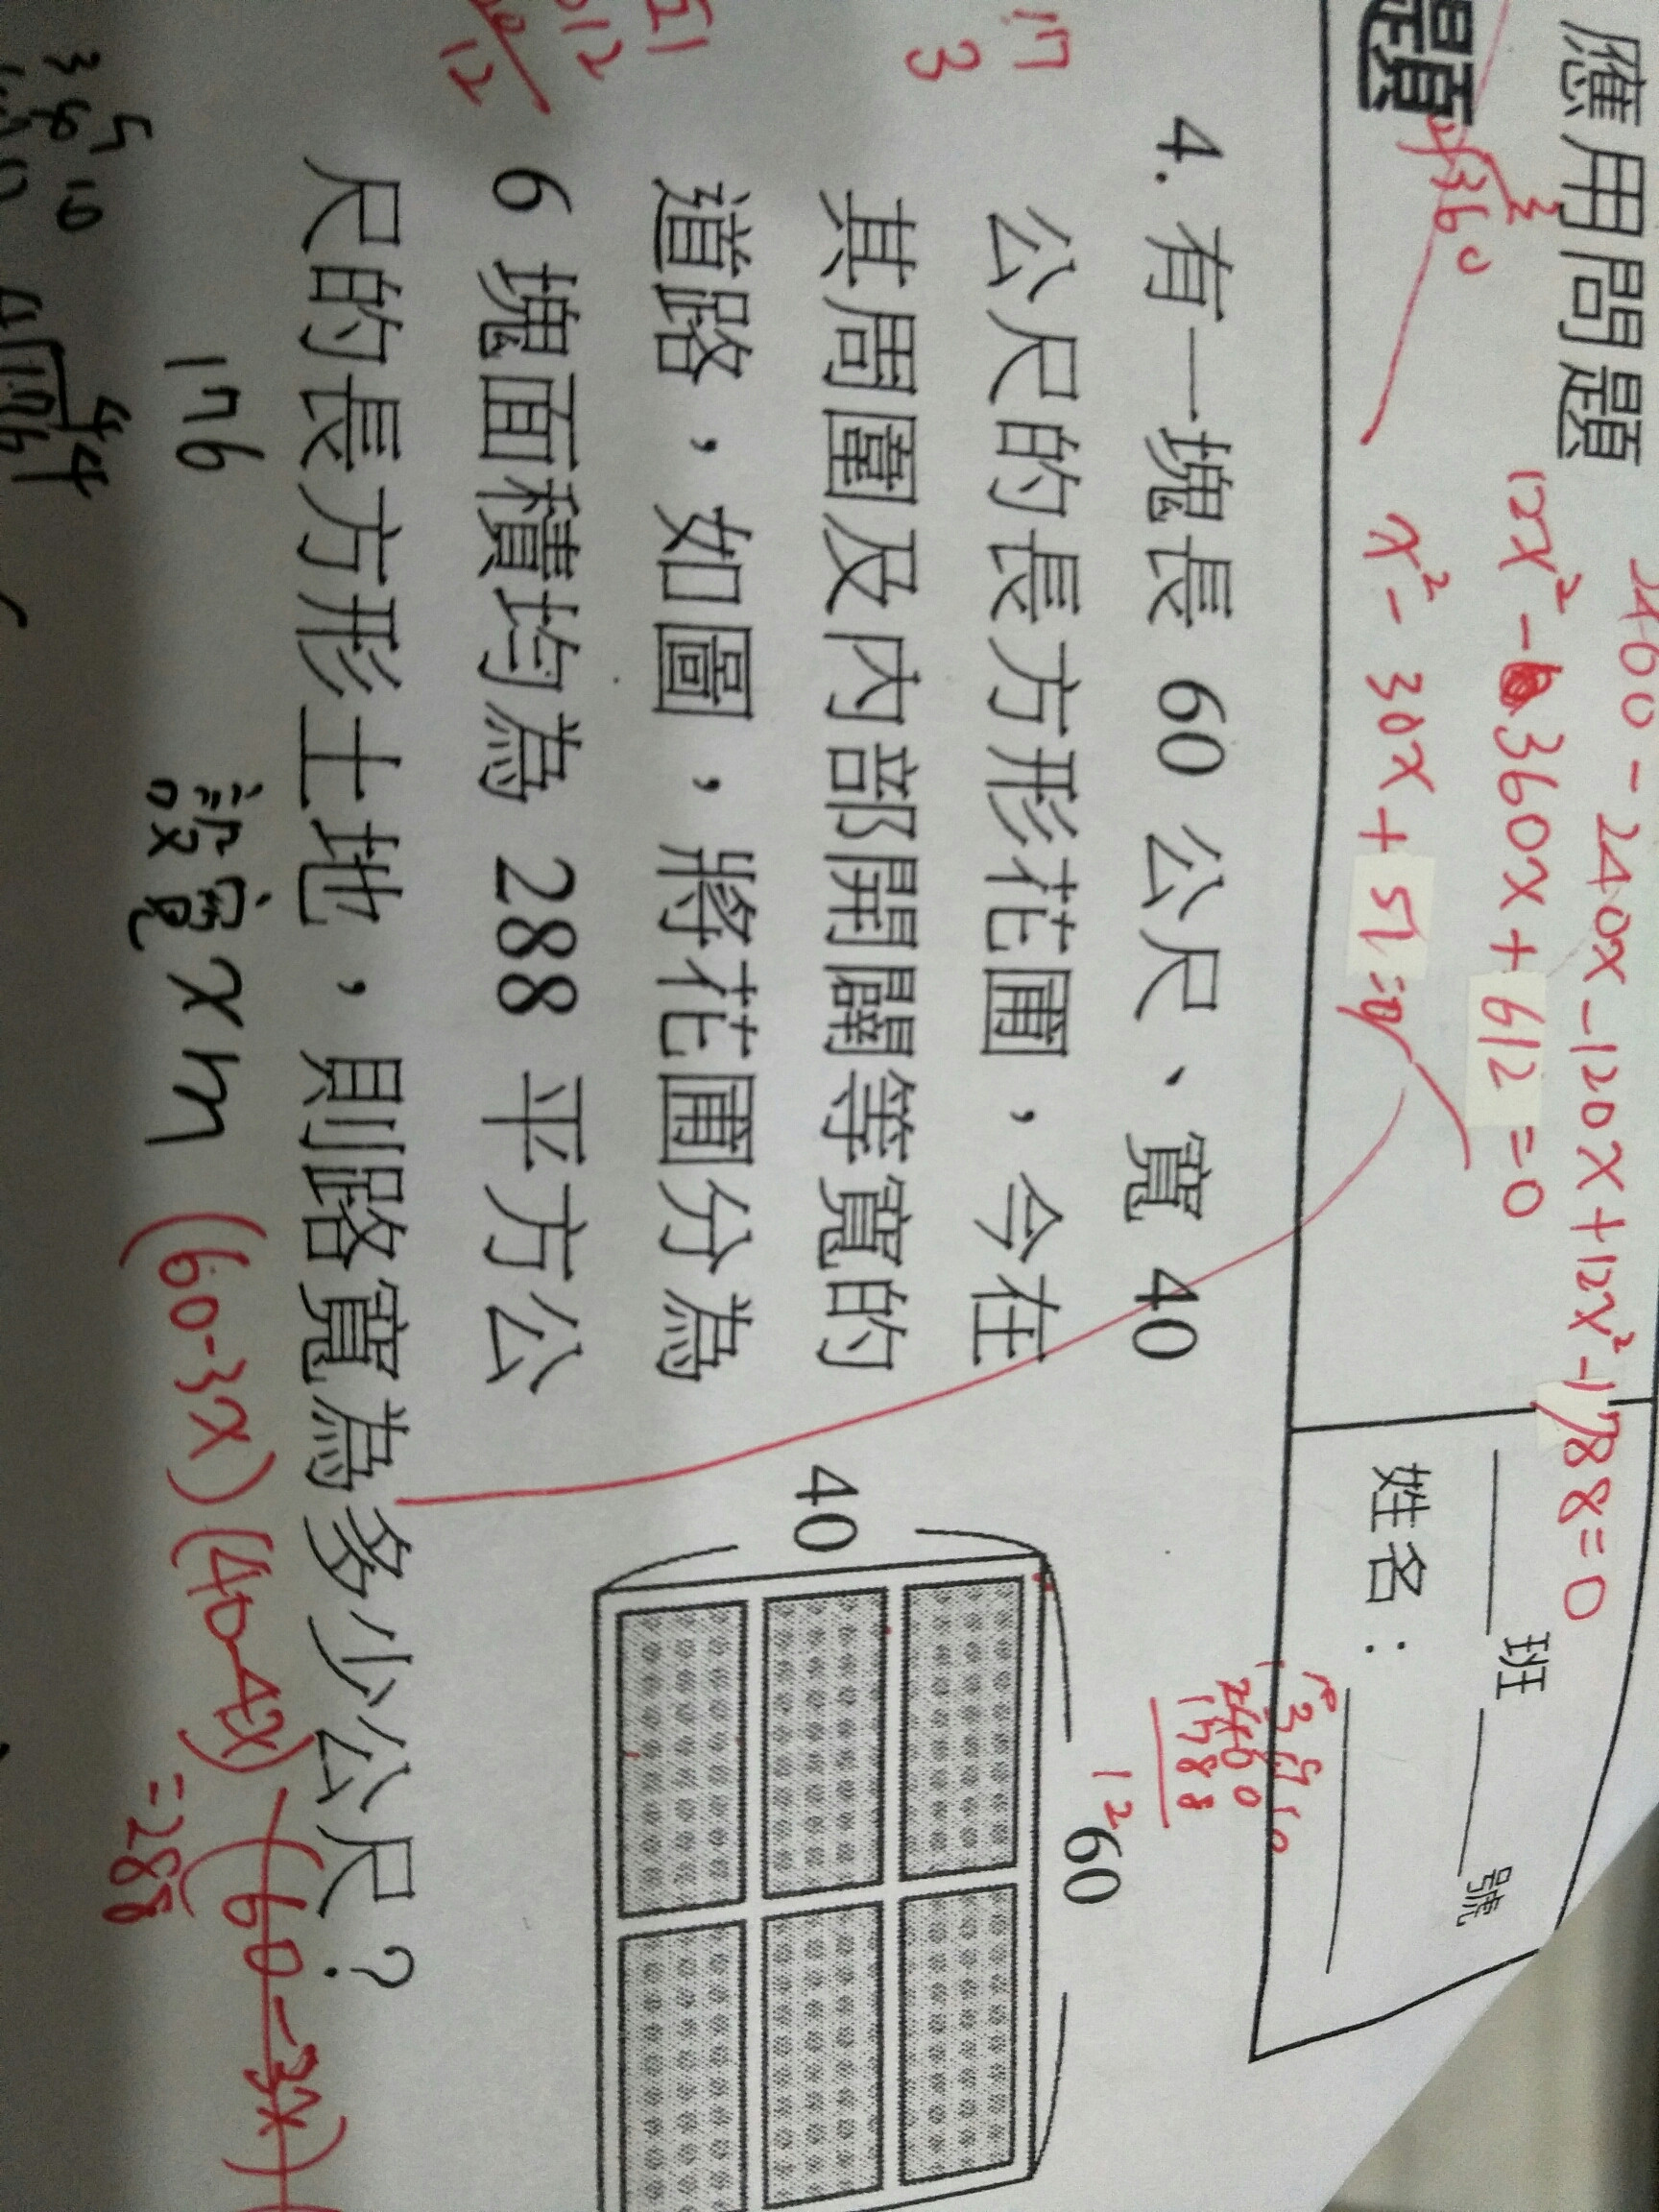 應用問題
題
2400-240x-120x+12x²-1788=0
12x²-360x+612=0
x²-30x+51=0
班
號
姓名：
4. 有一塊長 60 公尺、寬 40
公尺的長方形花圃，今在
其周圍及內部開闢等寬的
道路，如圖，將花圃分為
6 塊面積均為 288 平方公
尺的長方形土地，則路寬為多少公尺？
40
60
17
3
51
12
360
2400
1788
12
176
設寬xm
(60-3x)(40-4x)
=288
(60-3x)